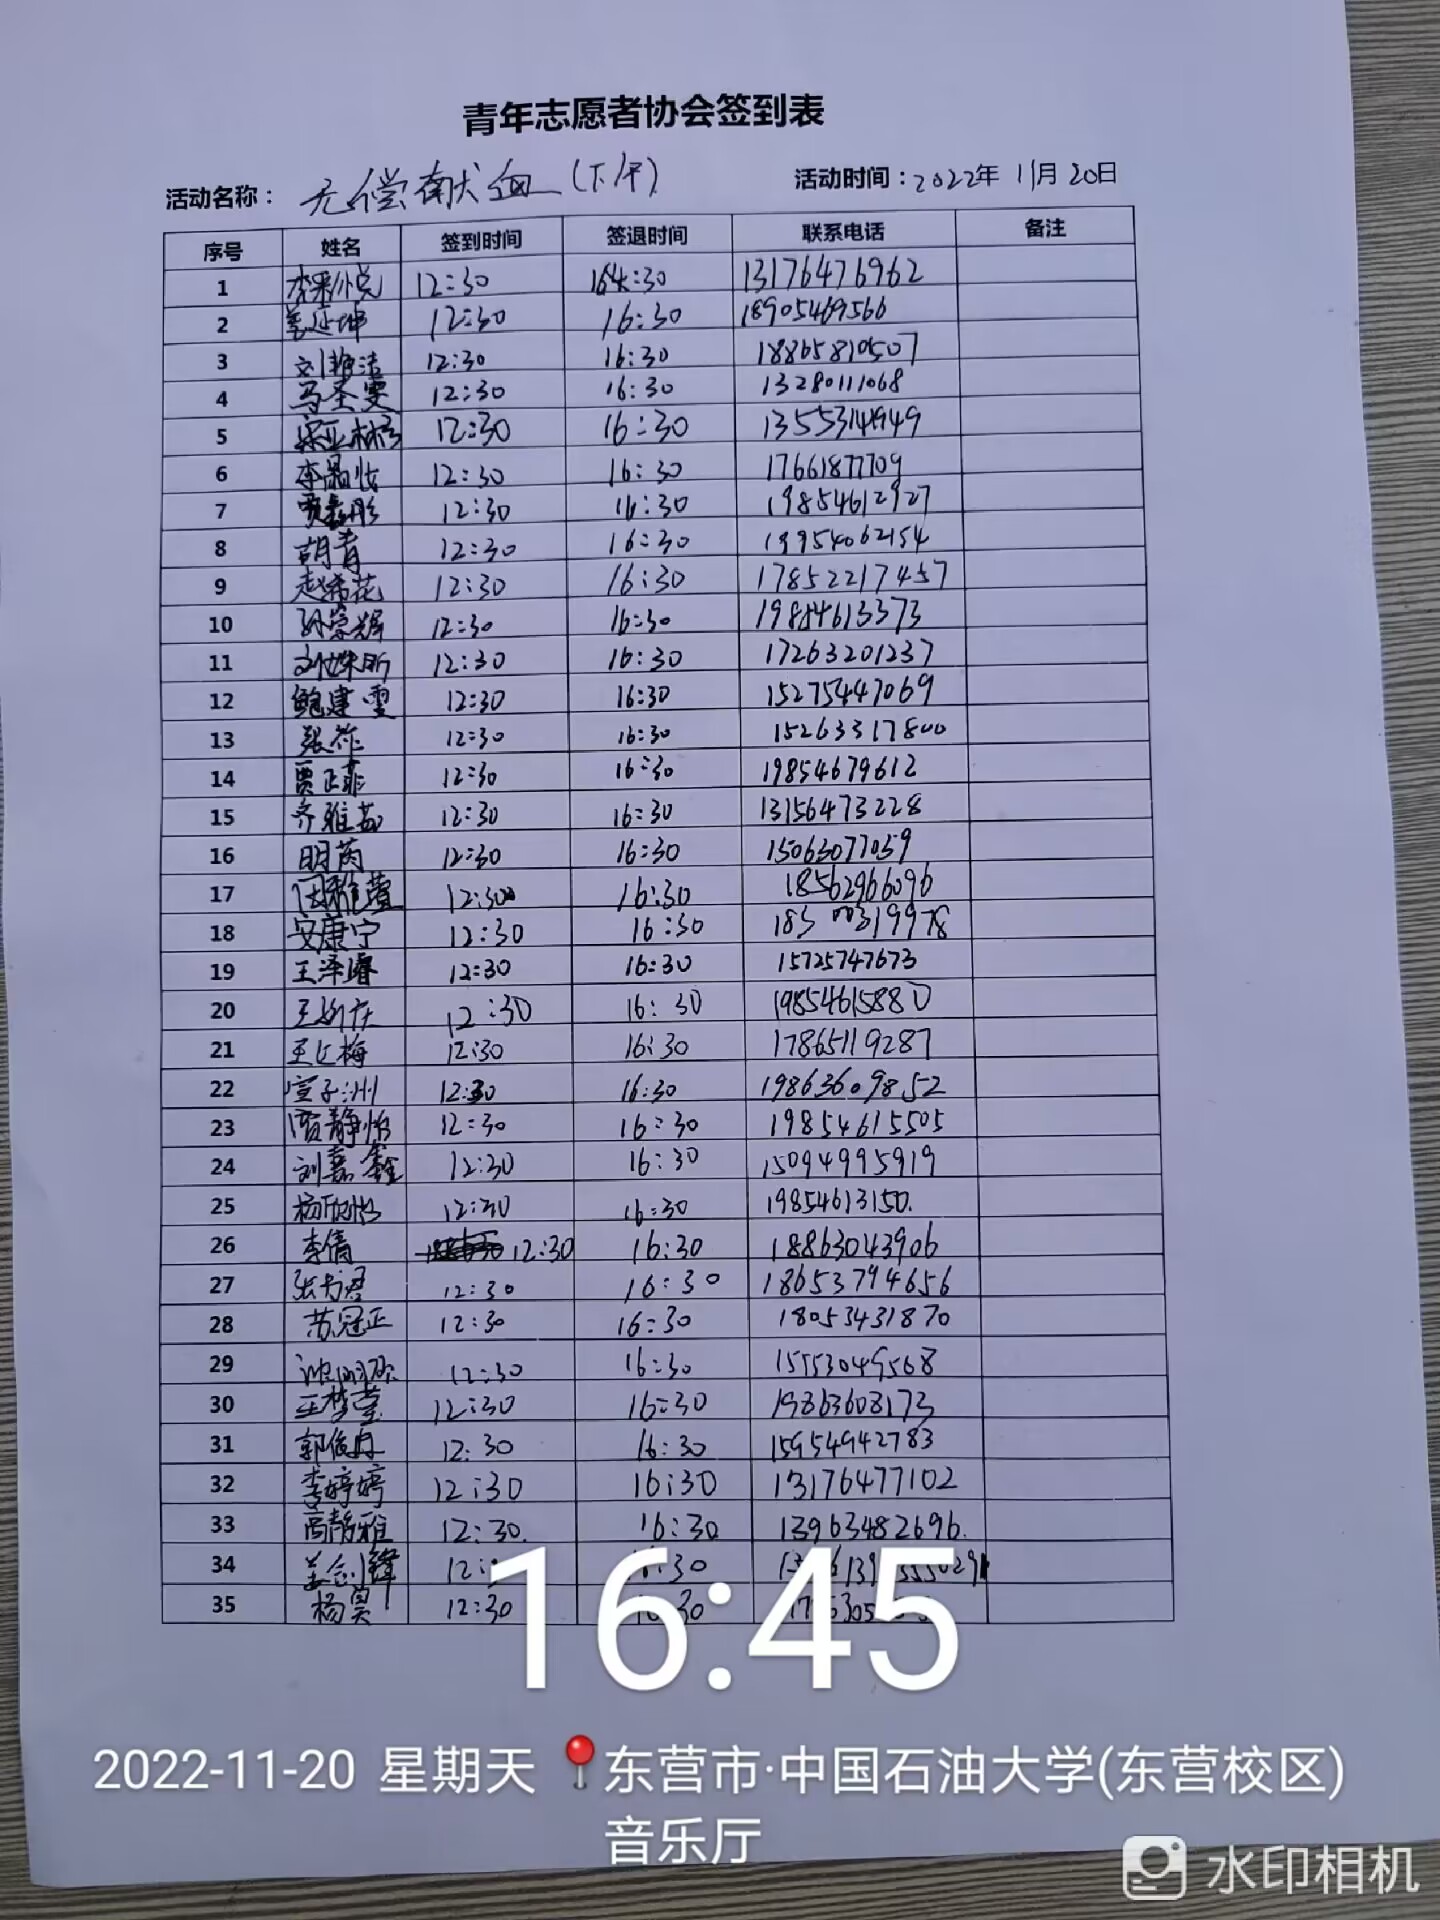 青年志愿者协会签到表
活动名称： 无偿献血（下午） 活动时间：2022年 11月 20日
序号 姓名 签到时间 签退时间 联系电话 备注
1 12:30 16:30 13176476962
2 姜延坤 12:30 16:30 18905469566
3 刘艳洁 12:30 16:30 18865810507
4 马圣雯 12:30 16:30 13280111068
5 12:30 16:30
6 李晶怡 12:30 16:30 17661877709
7 12:30 16:30 19854612927
8 胡青 12:30 16:30 19954062154
9 赵希花 12:30 16:30 17852217457
10 孙崇辉 12:30 16:30 19854613373
11 刘姝昕 12:30 16:30 17263201237
12 鲍建雪 12:30 16:30 15275447069
13 张祚 12:30 16:30 15263317800
14 贾正菲 12:30 16:30 19854679612
15 齐雅茹 12:30 16:30 13156473228
16 明芮 12:30 16:30 15063077059
17 12:30 16:30 18562966096
18 安康宁 12:30 16:30
19 王泽睿 12:30 16:30 15725747673
20 12:30 16:30 19854615880
21 12:30 16:30 17865119287
22 宣子洲 12:30 16:30 19863609852
23 贾静怡 12:30 16:30 19854615505
24 刘嘉鑫 12:30 16:30 15094995919
25 杨欣怡 12:30 16:30 19854613150.
26 李倩 12:30 16:30 18863043906
27 12:30 16:30 18653794656
28 苏冠正 12:30 16:30 18053431870
29 12:30 16:30 15553049568
30 王梦莹 12:30 16:30 19863608173
31 郭俊丹 12:30 16:30 15954942783
32 李婷婷 12:30 16:30 13176477102
33 高静雅 12:30. 16:30 13963482696.
34 姜剑锋
35 杨昊 12:30
16:45
2022-11-20 星期天 东营市·中国石油大学(东营校区)
音乐厅
水印相机